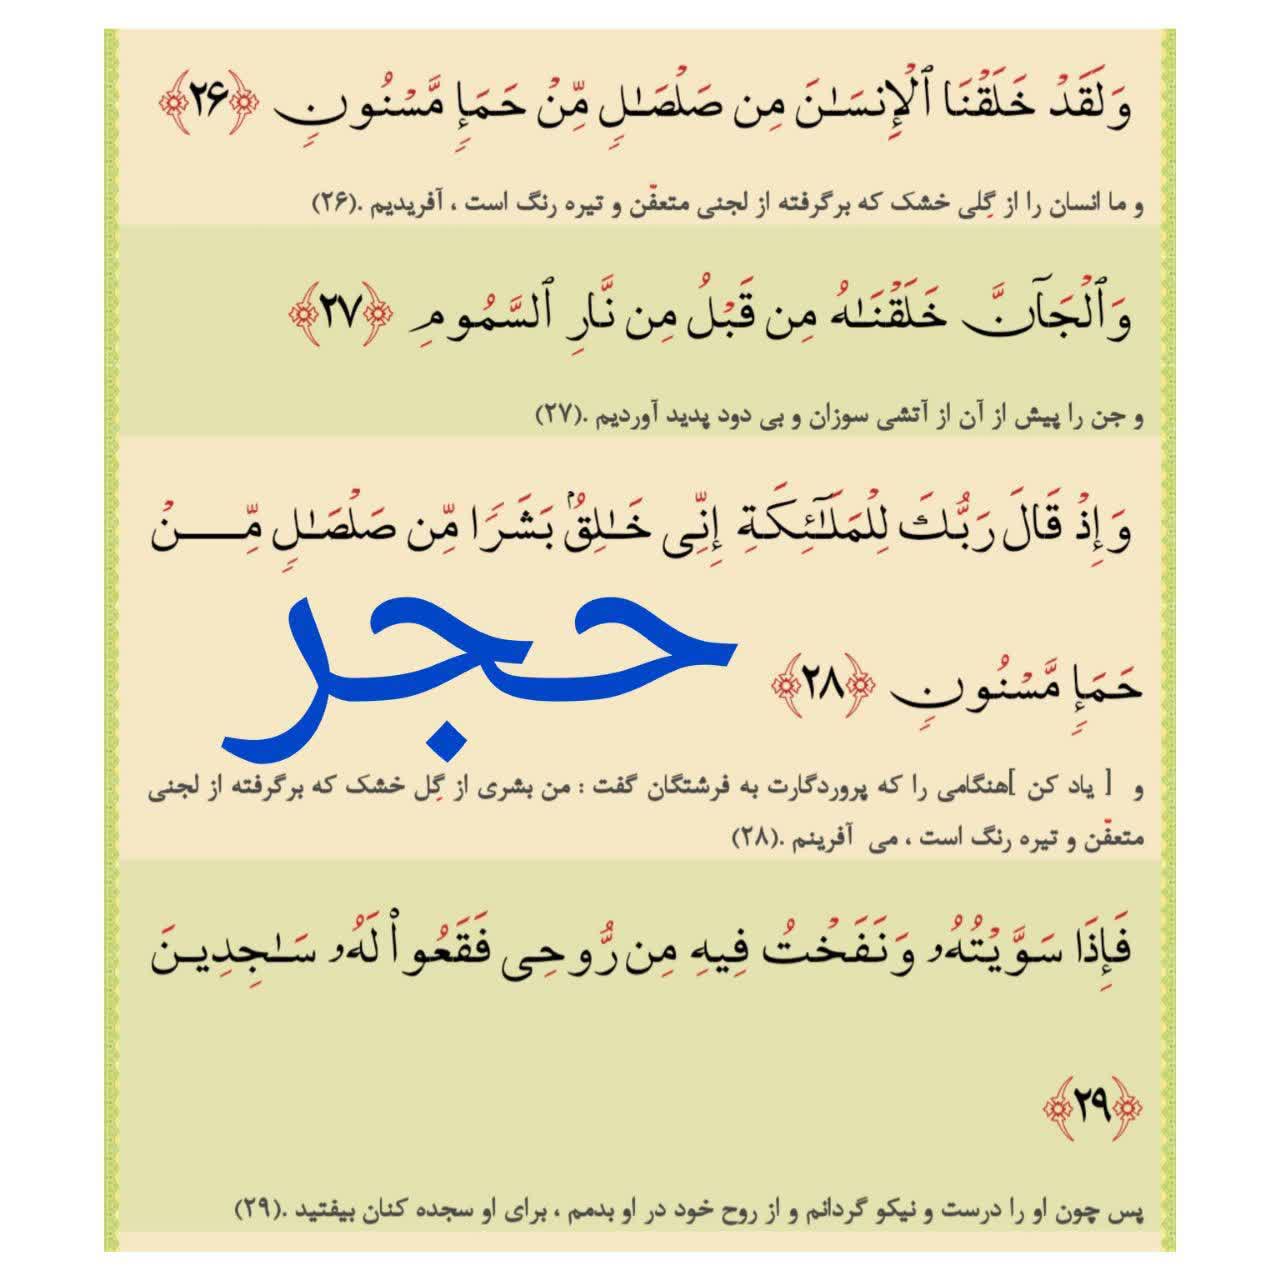 وَلَقَدْ خَلَقْنَا ٱلْإِنسَـٰنَ مِن صَلْصَـٰلٍ مِّنْ حَمَإٍ مَّسْنُونٍ ﴿۲۶﴾
و ما انسان را از گِلی خشک که برگرفته از لجنی متعفّن و تیره رنگ است ، آفریدیم .(۲۶)
وَٱلْجَآنَّ خَلَقْنَـٰهُ مِن قَبْلُ مِن نَّارِ ٱلسَّمُومِ ﴿۲۷﴾
و جن را پیش از آن از آتشی سوزان و بی دود پدید آوردیم .(۲۷)
وَإِذْ قَالَ رَبُّكَ لِلْمَلَـٰٓئِكَةِ إِنِّى خَـٰلِقٌۢ بَشَرًا مِّن صَلْصَـٰلٍ مِّـــنْ
حَمَإٍ مَّسْنُونٍ ﴿۲۸﴾
حجر
و [ یاد کن ]هنگامی را که پروردگارت به فرشتگان گفت : من بشری از گِل خشک که برگرفته از لجنی
متعفّن و تیره رنگ است ، می آفرینم .(۲۸)
فَإِذَا سَوَّيْتُهُۥ وَنَفَخْتُ فِيهِ مِن رُّوحِى فَقَعُوا۟ لَهُۥ سَـٰجِدِينَ
﴿۲۹﴾
پس چون او را درست و نیکو گردانم و از روح خود در او بدمم ، برای او سجده کنان بیفتید .(۲۹)